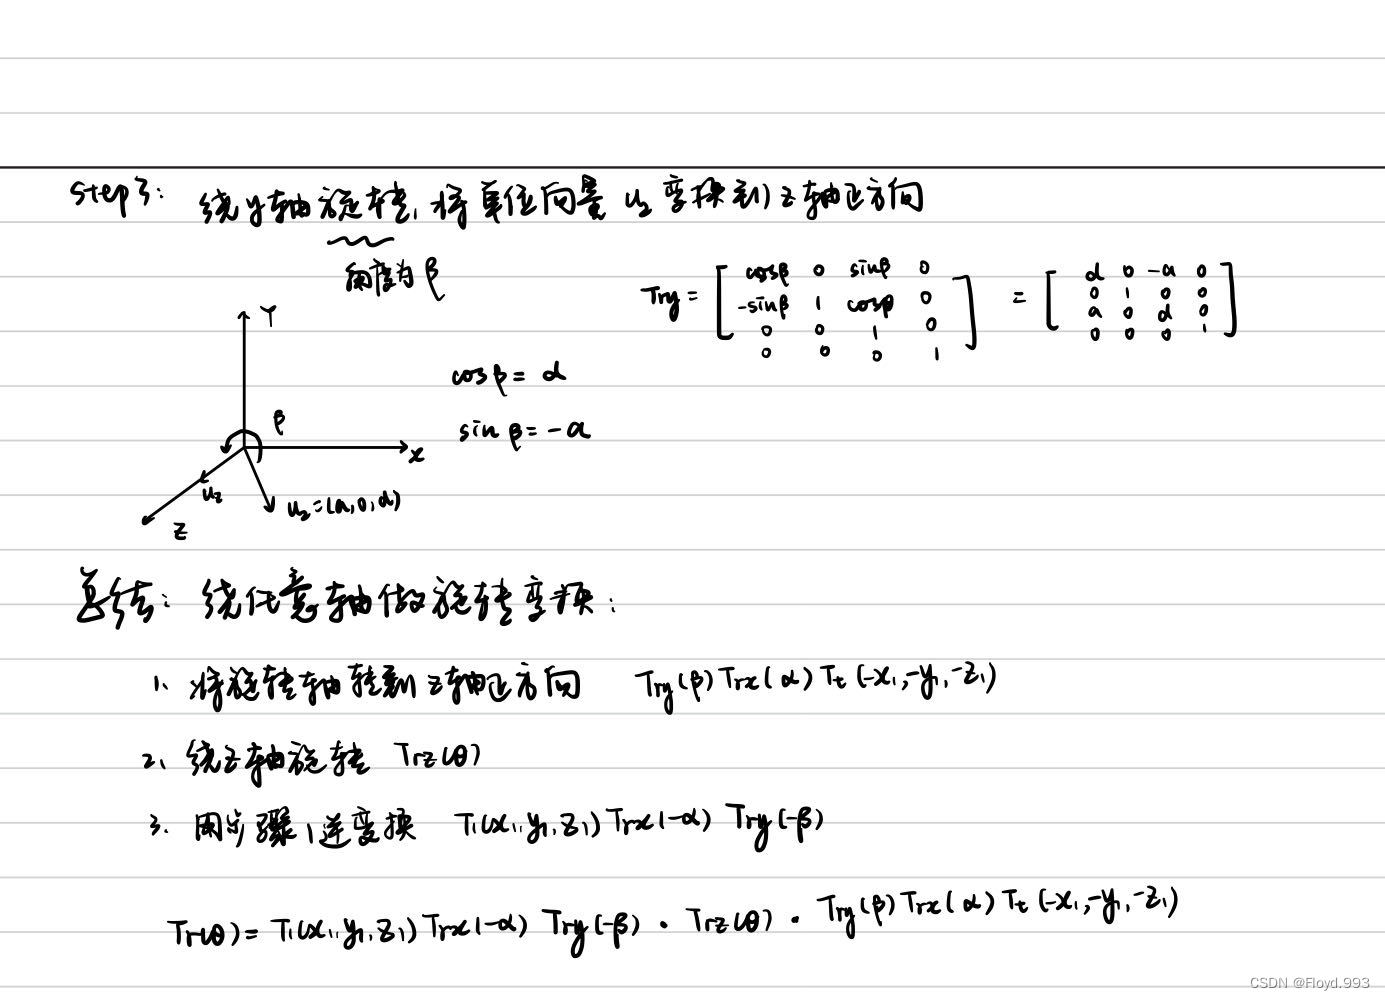 step3: 绕y轴旋转,将单位向量 u₂ 变换到z轴正方向
角度为 β
Try = [ cosβ 0 sinβ 0 ] = [ d 0 -a 0 ]
[ -sinβ 1 cosβ 0 ] [ 0 1 0 0 ]
[ 0 0 1 0 ] [ a 0 d 0 ]
[ 0 0 0 1 ] [ 0 0 0 1 ]
Y
cosβ = d
β
sinβ = -a
x
uz
u₂=(a,0,d)
Z
总结: 绕任意轴做旋转变换:
1. 将旋转轴转到z轴正方向 Try(β)Trx(α)Tt(-x₁,-y₁,-z₁)
2. 绕z轴旋转 Trz(θ)
3. 用步骤1逆变换 T(x₁,y₁,z₁)Trx(-α) Try(-β)
Tr(θ)= T(x₁,y₁,z₁)Trx(-α) Try(-β) · Trz(θ) · Try(β)Trx(α)Tt(-x₁,-y₁,-z₁)
CSDN @Floyd.993